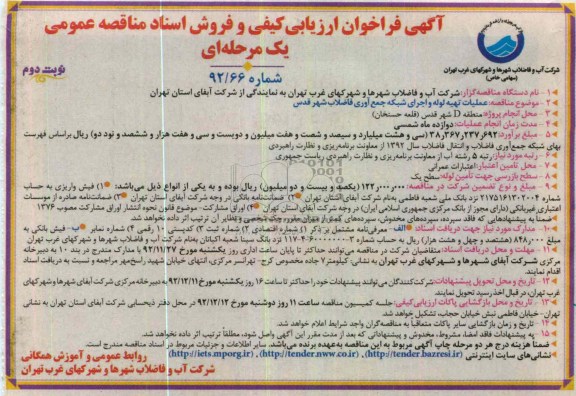 آگهی فراخوان ارزیابی کیفی و فروش اسناد مناقصه عمومی
یک مرحله‌ای
شماره ۹۲/۶۶
نوبت دوم
شرکت آب و فاضلاب شهرها و شهرکهای غرب تهران
(سهامی خاص)
۱ - نام دستگاه مناقصه‌گزار: شرکت آب و فاضلاب شهرها و شهرکهای غرب تهران به نمایندگی از شرکت آبفای استان تهران
۲ - موضوع مناقصه: عملیات تهیه لوله و اجرای شبکه جمع آوری فاضلاب شهر قدس
۳ - محل انجام پروژه: منطقه D شهر قدس (قلعه حسنخان)
۴ - مدت زمان انجام عملیات: دوازده ماه شمسی
۵ - مبلغ برآورد: ۳۸,۳۶۷,۲۳۷,۶۹۲ (سی و هشت میلیارد و سیصد و شصت و هفت میلیون و دویست و سی و هفت هزار و ششصد و نود دو) ریال براساس فهرست
بهای شبکه جمع‌آوری فاضلاب و انتقال فاضلاب سال ۱۳۹۲ از معاونت برنامه‌ریزی و نظارت راهبردی
۶ - رتبه مورد نیاز: رتبه ۵ رشته آب از معاونت برنامه‌ریزی و نظارت راهبردی ریاست جمهوری
۷ - محل تأمین اعتبار: اعتبارات عمرانی
۸ - سطح بازرسی جهت تأمین لوله: سطح یک
۹ - مبلغ و نوع تضمین شرکت در مناقصه: ۱۲۲,۰۰۰,۰۰۰ (یکصد و بیست و دو میلیون) ریال بوده و به یکی از انواع ذیل می‌باشد: ۱) فیش واریزی به حساب
شماره ۲۱۷۵۱۶۱۳۰۲۰۰۴ نزد بانک ملی شعبه فاطمی به‌نام شرکت آبفای استان تهران ۲) ضمانت‌نامه بانکی در وجه شرکت آبفای استان تهران ۳) ضمانت‌نامه صادره از موسسات
اعتباری غیربانکی (دارای مجوز از بانک مرکزی جمهوری اسلامی ایران) در وجه شرکت آبفای استان تهران ۴) اوراق مشارکت - موضوع قانون نحوه انتشار اوراق مشارکت مصوب ۱۳۷۶
ضمنا به پیشنهادهایی که فاقد سپرده، سپرده‌های مخدوش، سپرده‌های کمتر از میزان مقرر، چک شخصی و نظایر آن ترتیب اثر داده نخواهد شد.
۱۰ - مدارک مورد نیاز جهت دریافت اسناد: الف- معرفی‌نامه مشتمل بر ذکر ۱) شماره اقتصادی ۲) شماره ثبت ۳) کدپستی ۱۰ رقمی ۴) شماره نمابر ب- فیش بانکی به
مبلغ ۸۴۸,۰۰۰ (هشتصد و چهل و هشت هزار) ریال به حساب شماره نزد بانک سینا شعبه اکباتان به‌نام شرکت آب و فاضلاب شهرها و شهرکهای غرب تهران
۱۱ - مهلت و محل دریافت اسناد: متقاضیان شرکت در مناقصه می‌توانند حداکثر تا پایان ساعت اداری روز یکشنبه مورخ ۹۲/۱۱/۲۷ با مدارک مندرج در بند ۱۰ به دبیرخانه
مرکزی شرکت آبفای شهرها و شهرکهای غرب تهران به نشانی: کیلومتر ۷ جاده مخصوص کرج - تهرانسر مرکزی، انتهای خیابان شهید راسخ‌مهر مراجعه و نسبت به دریافت اسناد
اقدام نمایند.
۱۲ - تاریخ و محل تحویل پیشنهادات: شرکت‌کنندگان می‌توانند پیشنهادات خود را حداکثر تا ساعت ۱۶ روز یکشنبه مورخ ۹۲/۱۲/۱۱ به دبیرخانه مرکزی شرکت آبفای شهرها و شهرکهای
غرب تهران در قبال اخذ رسید تحویل نمایند.
۱۳ - تاریخ و محل بازگشایی پاکات ارزیابی کیفی: جلسه کمیسیون مناقصه ساعت ۱۱ روز دوشنبه مورخ ۹۲/۱۲/۱۲ در محل دفتر ذیحسابی شرکت آبفای استان تهران به نشانی
تهران- خیابان فاطمی نبش خیابان حجاب، تشکیل خواهد شد.
۱۴ - تاریخ و زمان بازگشایی سایر پاکات متعاقبا به مناقصه‌گران واجد شرایط اعلام خواهد شد.
۱۵ - به پیشنهادات فاقد امضا، مشروط، مخدوش و پیشنهاداتی که بعد از مدت مقرر این آگهی واصل شود، مطلقاً ترتیب اثر داده نخواهد شد.
ضمنا هزینه درج هر دو مرحله چاپ آگهی مربوط به این مناقصه به‌عهده برنده می‌باشد. سایر اطلاعات و جزئیات مربوط در اسناد مناقصه مندرج است.
نشانی‌های سایت اینترنتی (http://iets.mporg.ir) ، (http://tender.nww.co.ir) ، (http://tender.bazresi.ir)
روابط عمومی و آموزش همگانی
شرکت آب و فاضلاب شهرها و شهرکهای غرب تهران